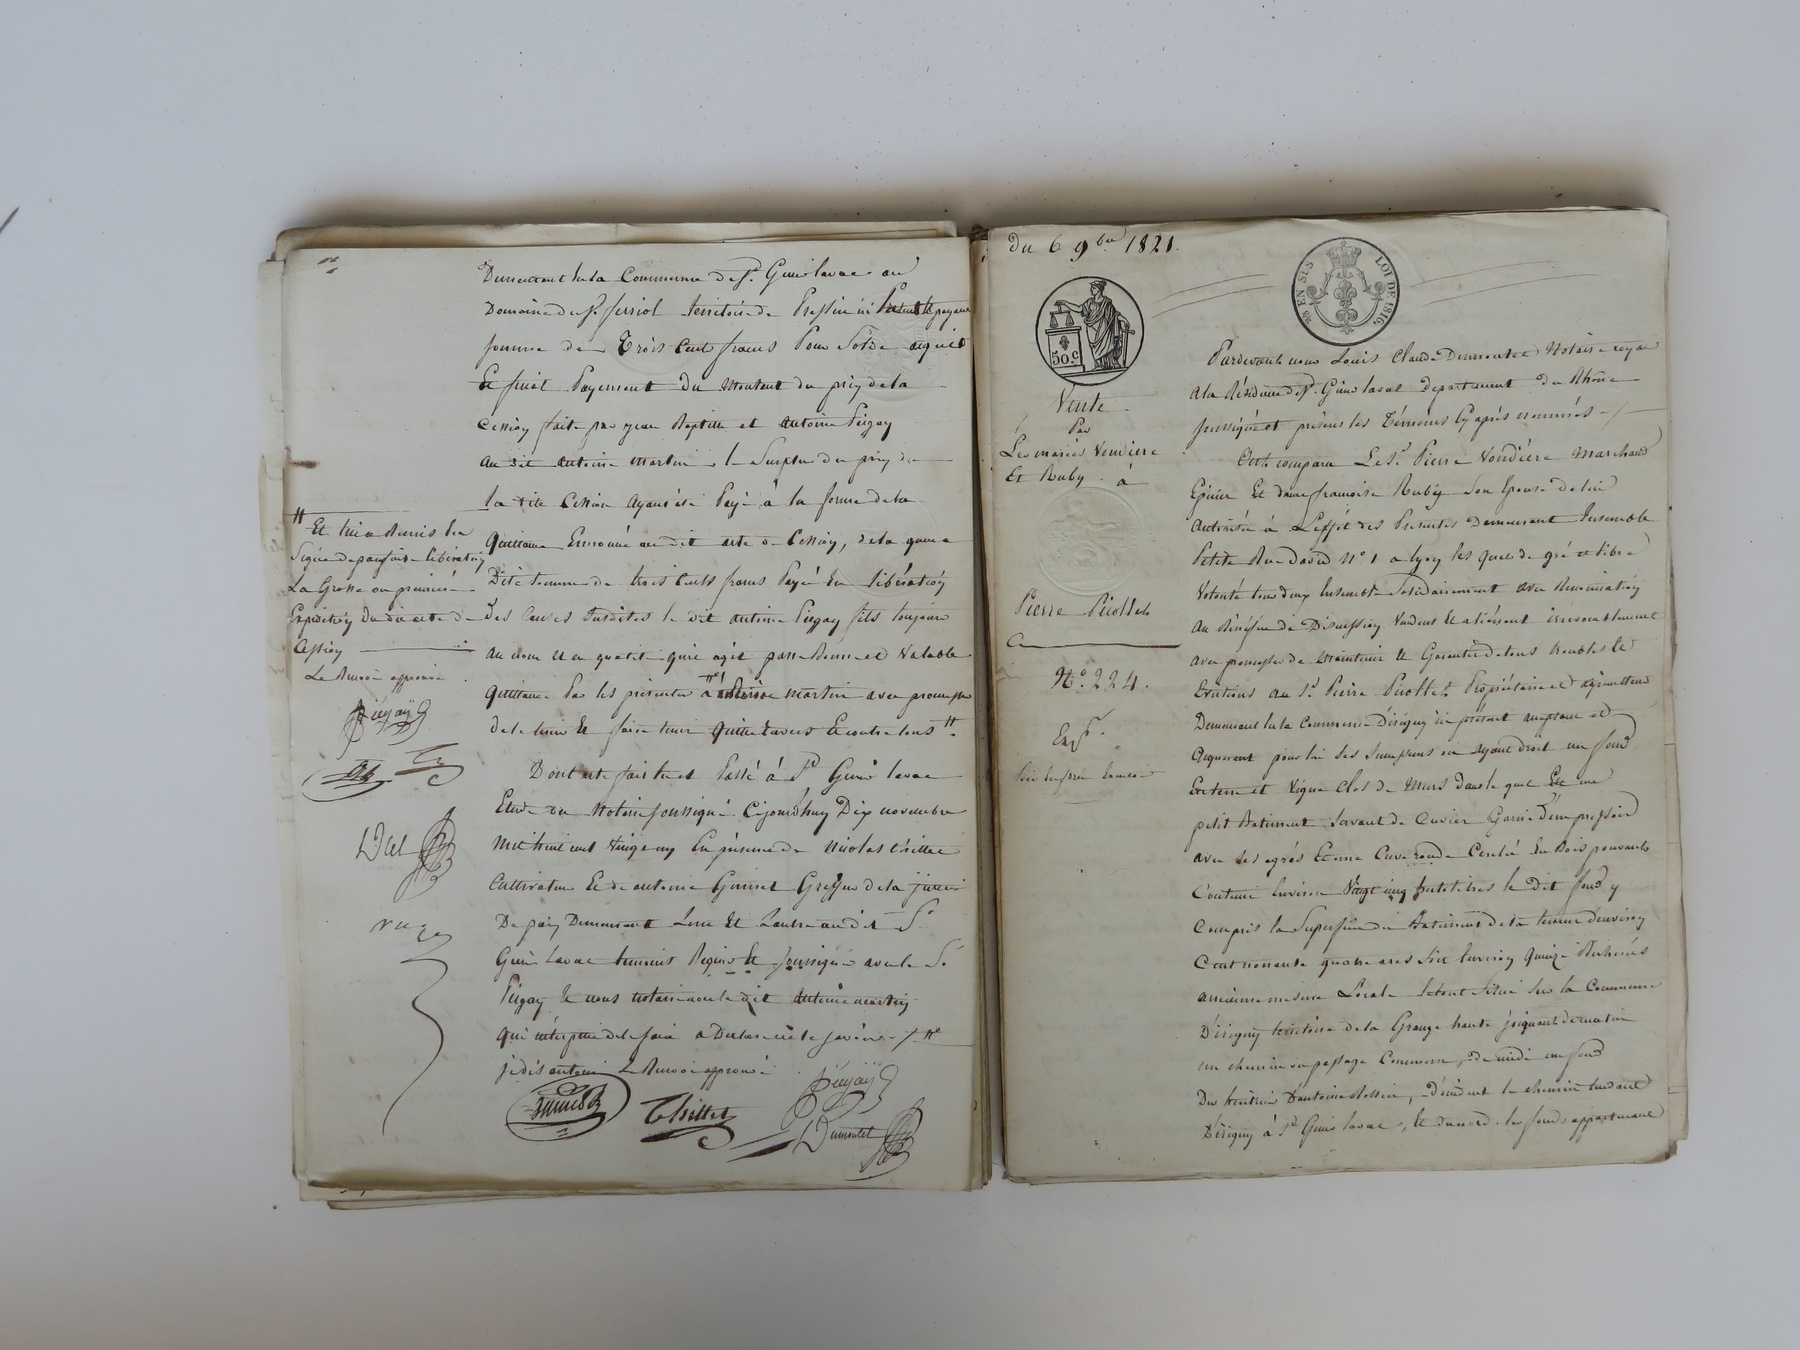 Demeurant en la Commune de St. Genis laval au
Domaine de St. ferriol territoire de Pressin ici Présent & payant
somme de Trois Cents francs Pour Solde acquit
Et final Payement Du Montant du prix de la
Cession faite par jean Baptiste et antoine Piegay
au dit antoine martin, le Surplus du prix de
la dite Cession ayant été Payé à la forme de la
quittance Enoncée au dit acte de Cession, de la quelle
Dite somme de trois Cents francs Payé En libération
des Causes Susdites le dit antoine Piegay fils toujours
au nom et en qualité qu'il agit passe Bonne et Valable
quittance Par les présentes à antoine martin avec promesse
de le tenir & faire tenir quitte envers Et contre tous #.
Dont acte fait lu et Passé à St Genis laval
Etude du Notaire soussigné. Cejourd'huy Dix novembre
mil huit cent vingt un En présence de Nicolas thillet
Cultivateur Et de antoine Greffier de la justice
De paix Demeurant L'un Et L'autre au dit St
Genis Laval temoins Requis & soussignés avec le S.
Piegay & nous notaire non le dit Antoine martin
qui interpellé de le faire a Déclaré ne le savoir ./. #
je dis antoine Le Renvoi approuvé
Piegay
Thillet
Dumontet
# Et lui a Remis en
Signe de parfaite libération
La Grosse ou première
Expédition du dit acte de
Cession
Le Renvoi approuvé
Piegay
Du 6 9bre 1821.
EN SUS LOI DE 1816.
50.c
Vente
Par
Les mariés Voudière
Et Ruby à
Pierre Picollet
No. 224.
Exp.
Pardevant nous Louis Claude Dumontet Notaire royal
à la Résidence de St. Genis laval Département du Rhône
soussigné et présens les Témoins Cy après nommés
Ont comparu Le Sr. Pierre Voudière Marchand
Epicier Et dame françoise Ruby Son Epouse de lui
Autorisée à L'effet des Présentes demeurant Ensemble
Petite Rue david No 1 à lyon les quels de gré et libre
Volonté tous deux Ensemble Solidairement avec Renonciation
au Bénéfice de Discussion Vendent Et aliènent irrévocablement
avec promesse de Maintenir & Garantir de tous troubles &
Evictions au Sr. Pierre Picollet Propriétaire et agriculteur
Demeurant en la Commune D'irigny ici présent acceptant et
acquérant pour lui Ses Successeurs ou ayant droit un fond
En terre et Vigne Clos de Murs dans le quel Est un
petit Batiment Servant de Cuvier Garni D'un pressoir
avec ses agrés Et une Cuve ronde Cerclée En Bois pouvant
Contenir Environ Vingt cinq hectolitres le Dit fond y
Compris la Superficie du Batiment de la teneur d'environ
Cent nonante quatre ares Soit Environ quinze Bicherées
ancienne mesure Locale le tout Situé Sur la Commune
D'irigny territoire de la Grange haute joignant de matin
un chemin ou passage Commun, de midi un fond
Des héritiers D'antoine, d'occident le chemin tendant
D'irigny à St Genis laval, & du nord le fond appartenant